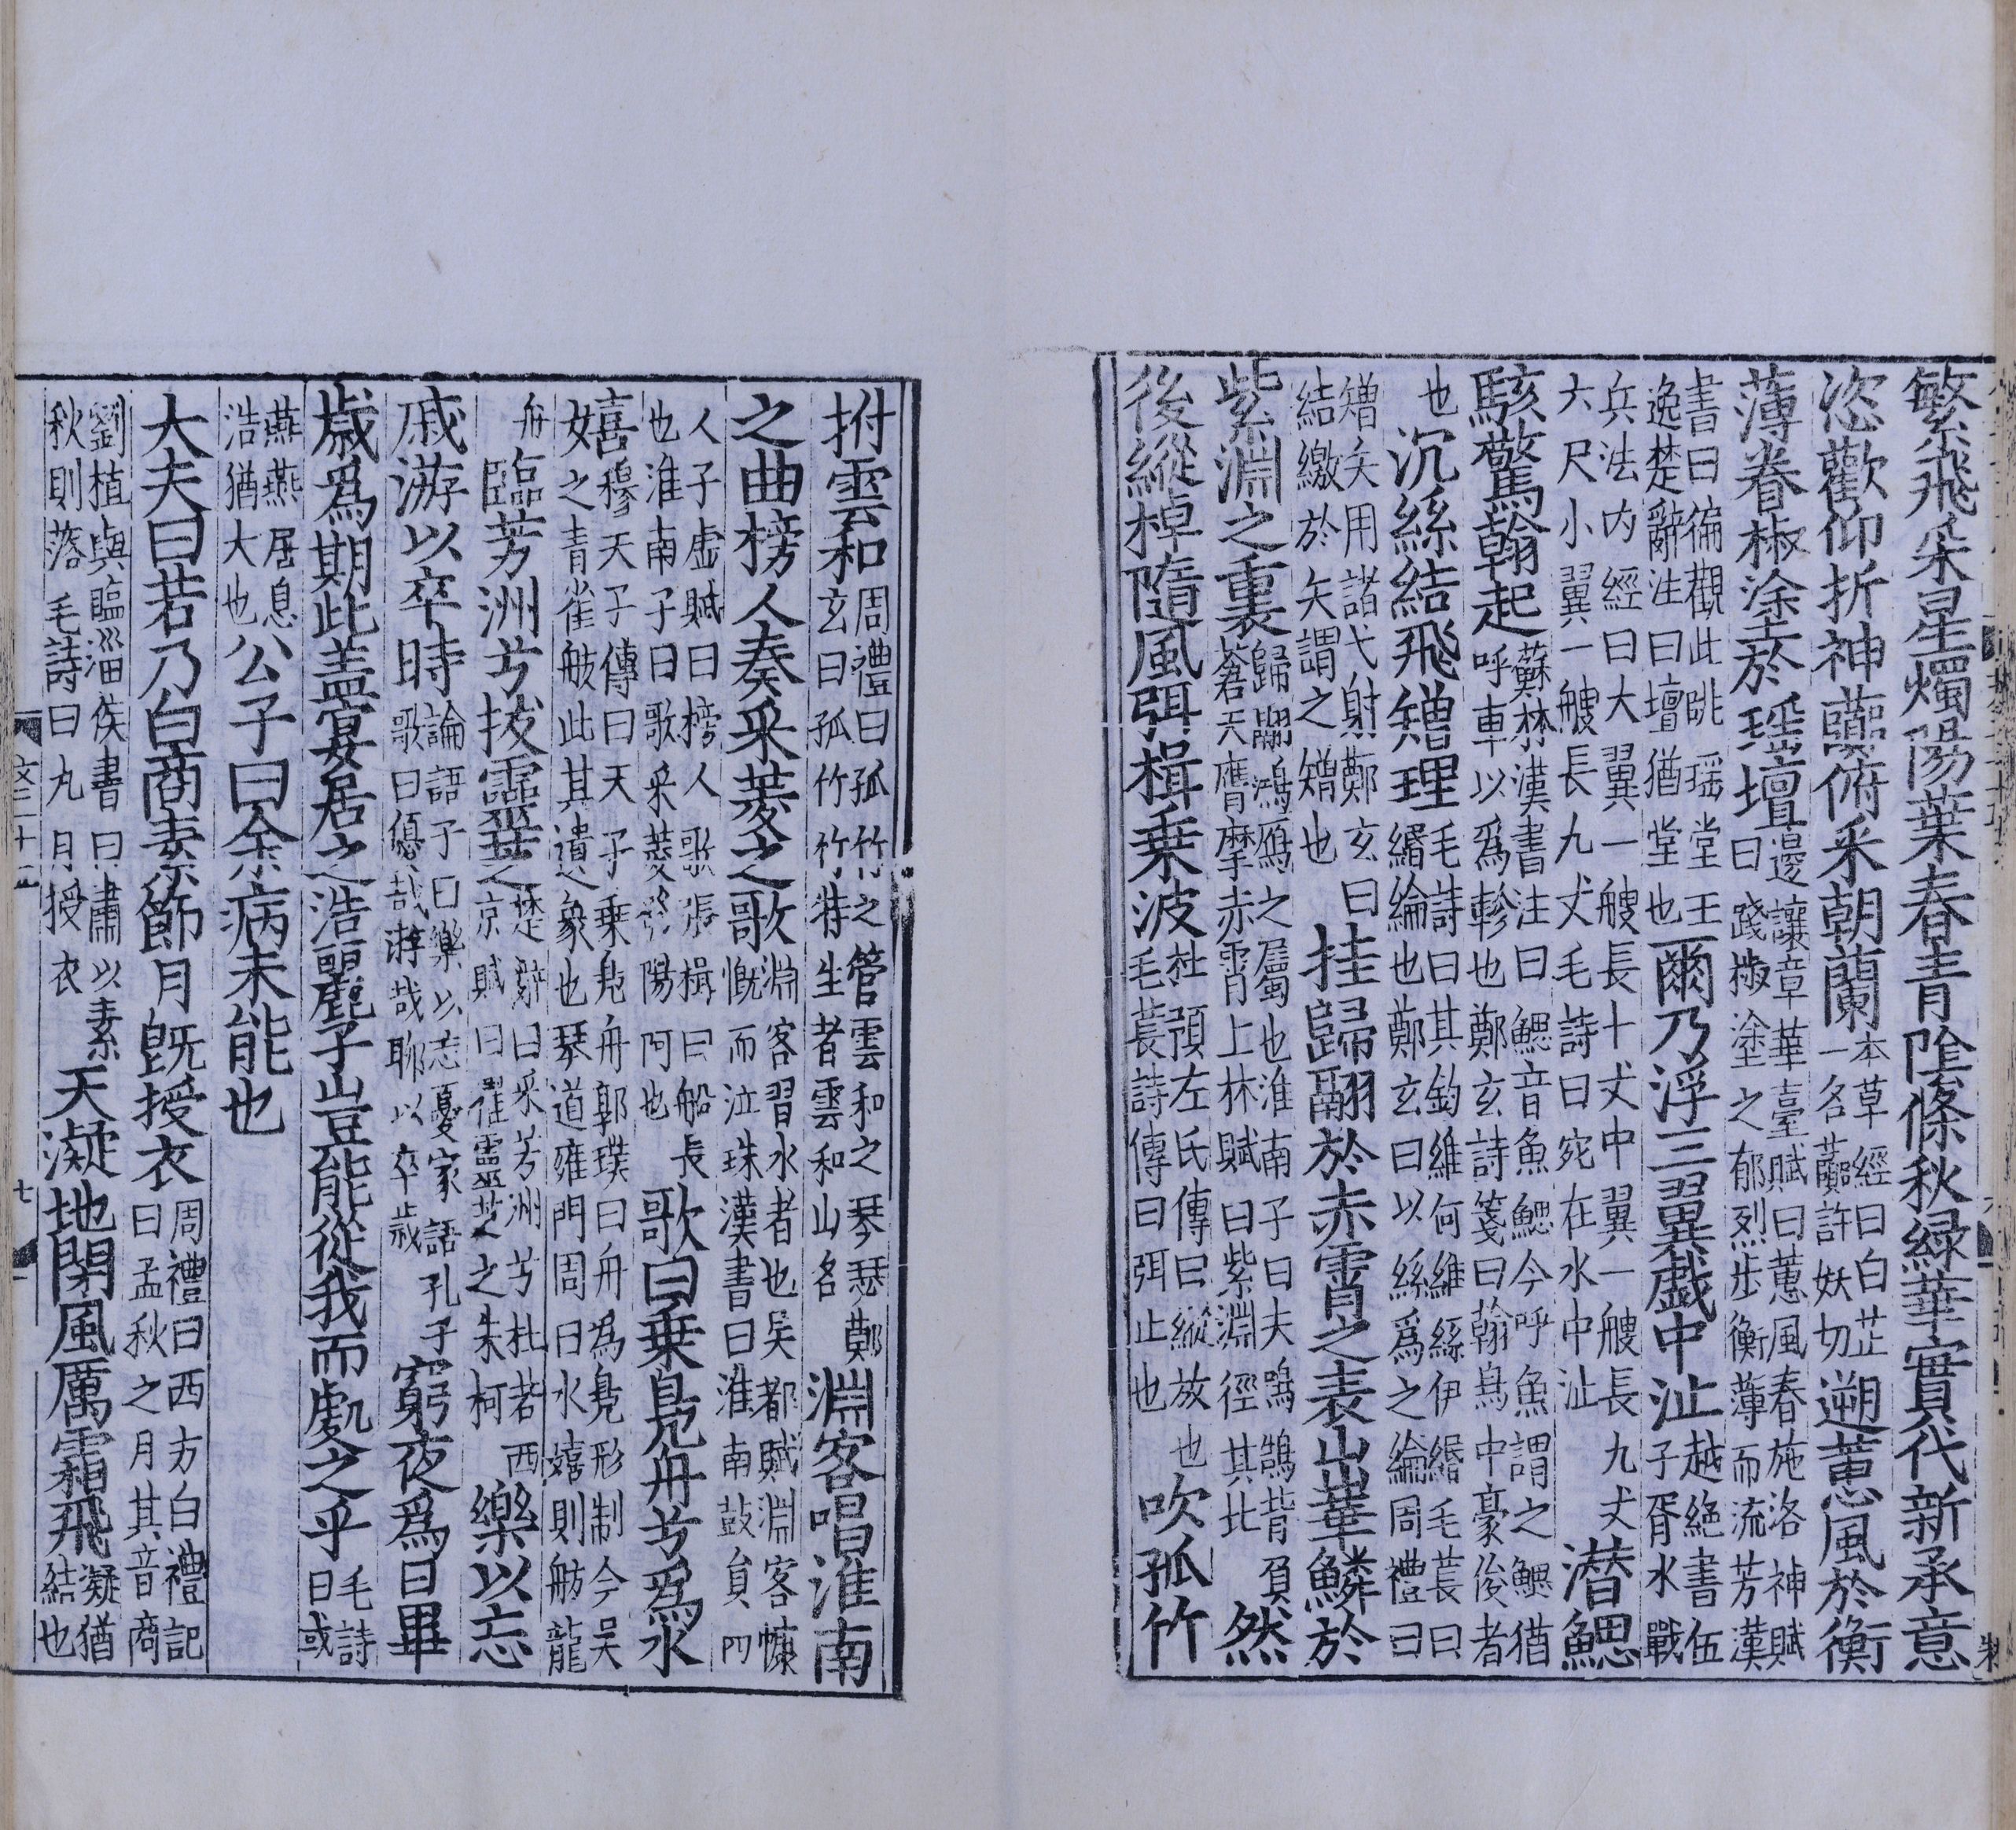 繁飛采星燭陽葉春青隂條秋緑華實代新承意
恣歡仰折神虈俯采朝蘭本草經曰白芷一名虈許妖切遡蕙風於衡
薄眷椒塗於瑶壇邊讓章華臺賦曰蕙風春施洛神賦曰踐椒塗之郁烈步衡薄而流芳漢
書曰徧觀此眺瑶堂王逸楚辭注曰壇猶堂也爾乃浮三翼戯中沚越絶書伍子胥水戰
兵法内經曰大翼一艘長十丈中翼一艘長九丈六尺小翼一艘長九丈毛詩曰宛在水中沚潜鰓
駭驚翰起蘇林漢書注曰鰓音魚鰓今呼魚謂之鰓猶呼車以爲軫也鄭玄詩箋曰翰鳥中豪俊者
也沉絲結飛矰理毛詩曰其釣維何維絲伊緡毛萇曰緡綸也鄭玄曰以絲爲之綸周禮曰
矰矢用諸弋射鄭玄曰結繳於矢謂之矰也挂歸翮於赤霄之表出華鱗於
紫淵之裏歸翮鴻鴈之屬也淮南子曰夫鴻鵠背負蒼天膺摩赤霄上林賦曰紫淵徑其北然
後縱棹隨風弭楫乗波杜預左氏傳曰縱放也毛萇詩傳曰弭止也吹孤竹
拊雲和周禮曰孤竹之管雲和之琴瑟鄭玄曰孤竹竹特生者雲和山名淵客唱淮南
之曲榜人奏采菱之歌淵客習水者也吳都賦淵客慷慨而泣珠漢書曰淮南鼓員四
人子虚賦曰榜人歌張楫曰船長也淮南子曰歌采菱發陽阿也歌曰乗鳧舟兮爲水
嬉穆天子傳曰天子乗鳧舟郭璞曰舟為鳧形制今吴女之青雀舫此其遺象也琴道雍門周曰水嬉則舫龍
舟臨芳洲兮拔靈芝楚辭曰采芳洲兮杜若西京賦曰濯靈芝之朱柯樂以忘
戚游以卒時論語子曰樂以忘憂家語孔子歌曰優哉游哉聊以卒歳窮夜爲日畢
歳爲期此盖宴居之浩麗子豈能從我而處之乎毛詩曰或
燕燕居息浩猶大也公子曰余病未能也
大夫曰若乃白商素節月旣授衣周禮曰西方白禮記曰孟秋之月其音商
劉植與臨淄侯書曰肅以素秋則落毛詩曰九月授衣天凝地閉風厲霜飛凝猶結也
文三十五
七